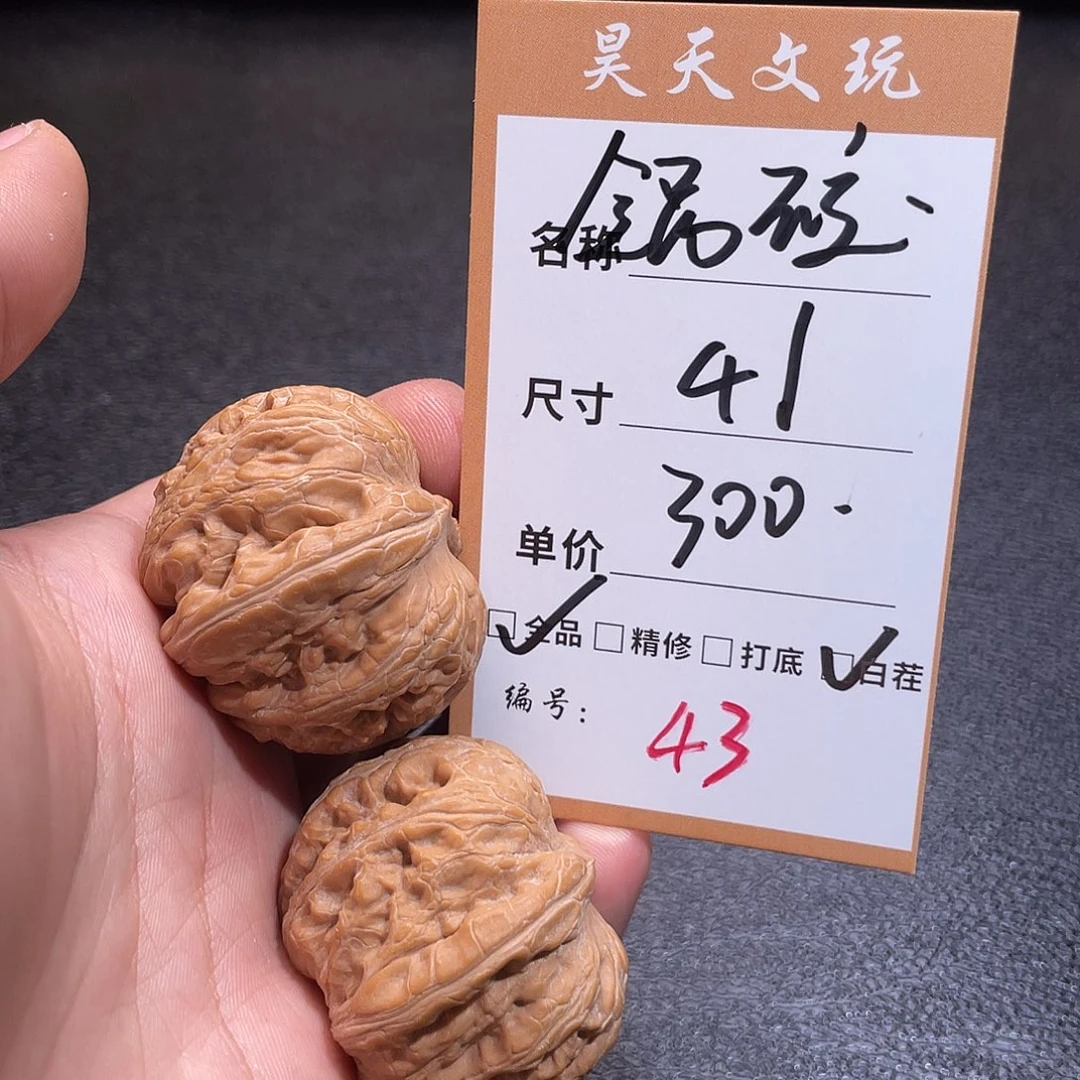 昊天文玩
名称 锅砣.
尺寸 41
单价 300.
☑全品 □精修 □打底 ☑白茬
编号: 43